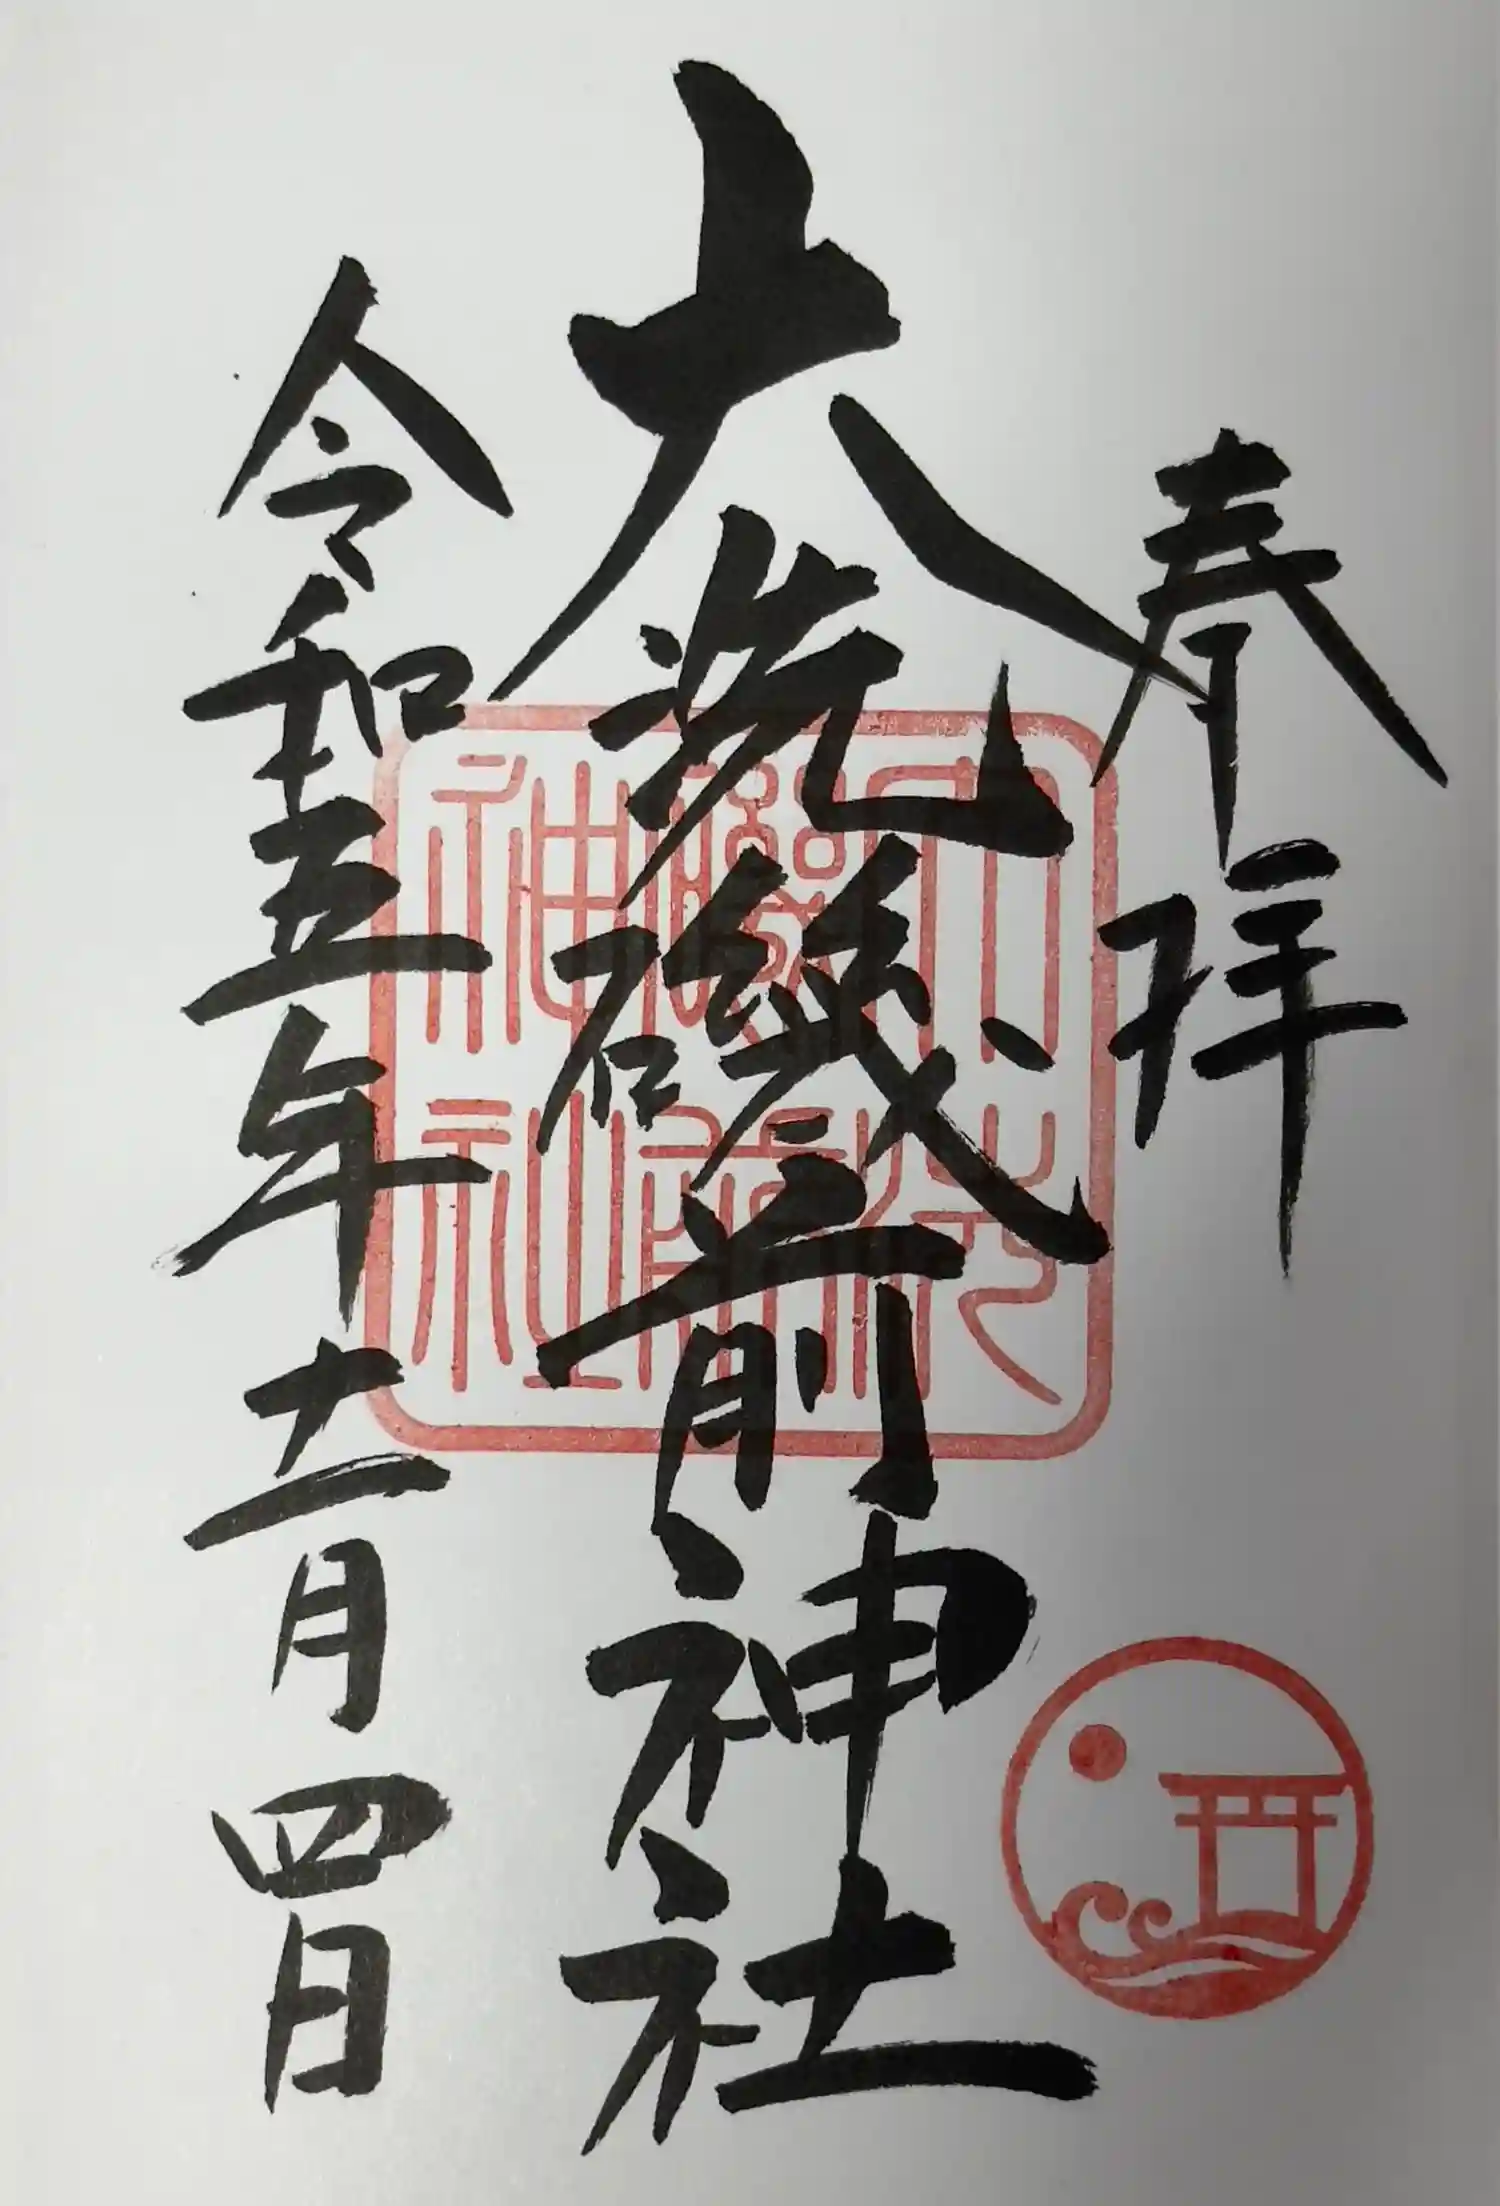 奉拝
大洗磯前神社
令和五年十一月四日
大洗磯前神社